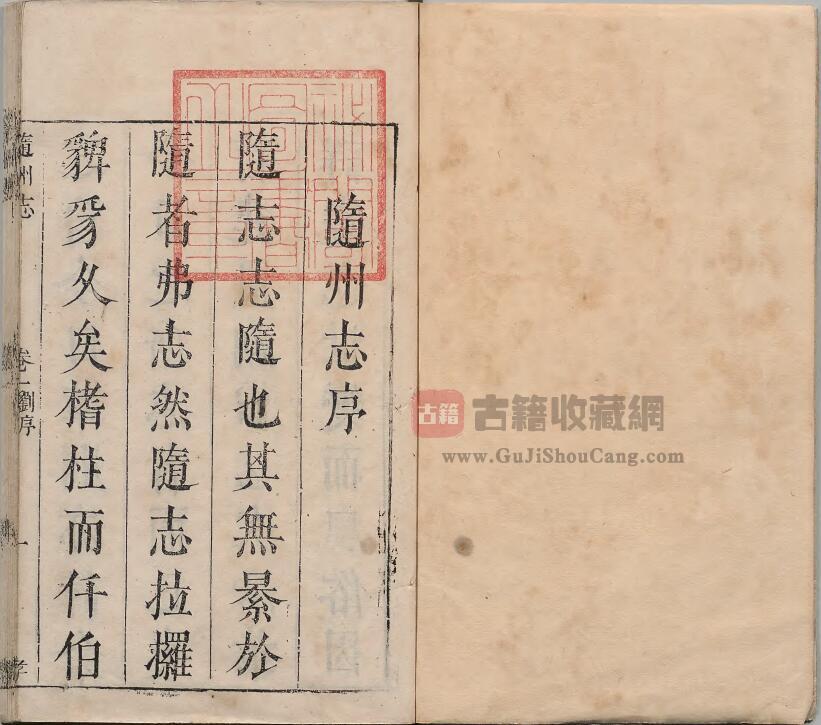 隨州志序
隨志志隨也其無纍於
隨者弗志然隨志拉攞
豸久矣楮柱而仟伯
隨州志
卷一劉序
一
古籍
古籍收藏網
www.GuJiShouCang.com